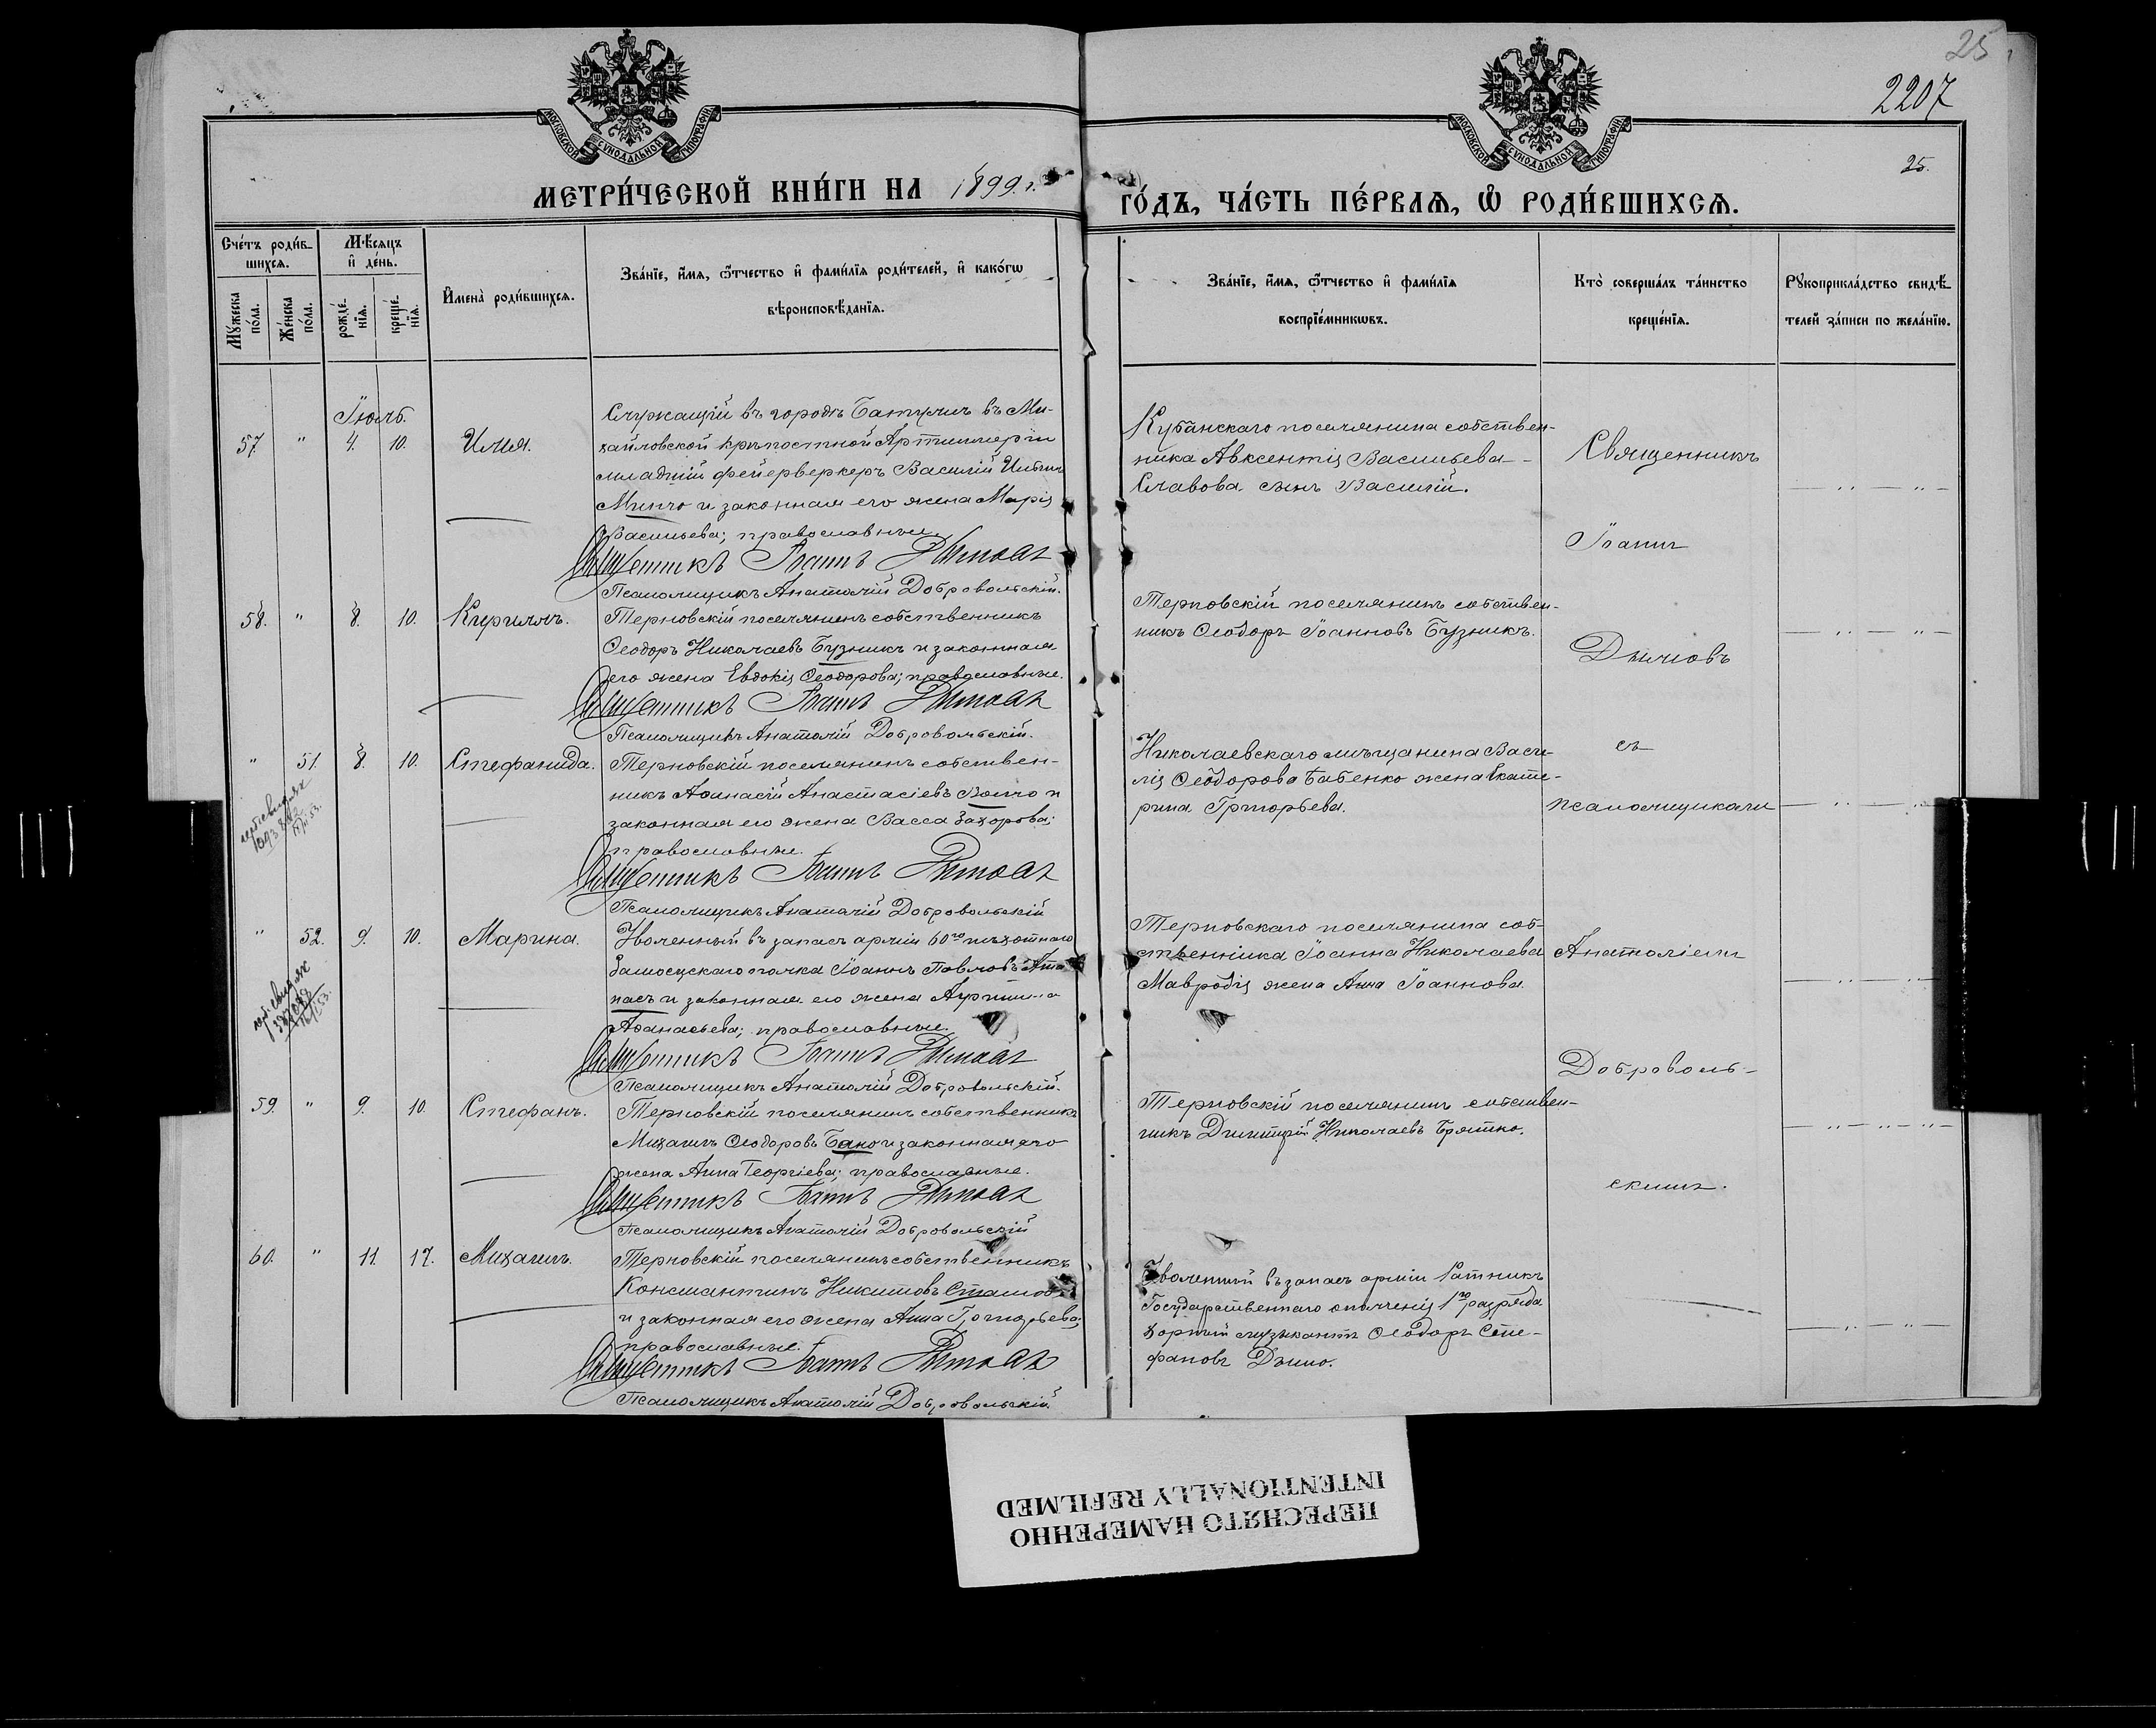 25
2207
25.
МОСКОВСКОЙ СУНОДАЛЬНОЙ ТИПОГРАФИИ
МОСКОВСКОЙ СУНОДАЛЬНОЙ ТИПОГРАФИИ
МЕТРИ́ЧЕСКОЙ КНИ́ГИ НА 1899 г.
ГО́ДЪ, ЧА́СТЬ ПЕ́РВАЯ, Ѡ РОДИ́ВШИХСЯ.
Сче́тъ роди́в-
шихся.
Мꙋ́жеска по́ла.
Же́нска по́ла.
Мѣ́сяцъ
и҆ де́нь.
рожде́-
нїя.
креще́-
нїя.
И҆мена̀ роди́вшихся.
Зва́нїе, и҆́мя, ѻ҆́тчество и҆ фами́лїя роди́телей, и҆ како́гѡ
вѣроисповѣ́данїя.
Зва́нїе, и҆́мя, ѻ҆́тчество и҆ фами́лїя
воспрїе́мникѡвъ.
Кто̀ соверша́лъ та́инство
креще́нїя.
Рꙋкоприкла́дство свидѣ́-
телей за́писи по жела́нїю.
Іюль.
57. " 4. 10. Илія.
Служащій въ городѣ Батумѣ въ Ми-
хайловской крѣпостной Артиллеріи
младшій фейерверкеръ Василій Ильинъ
Минчо и законная его жена Марія
Васильева; православные.
Священникъ Іоаннъ Дымовъ
Псаломщикъ Анатолій Добровольскій.
Кубанскаго поселянина собствен-
ника Авксентія Васильева
Славова сынъ Василій.
Священникъ
Іоаннъ
Дымовъ
съ
псаломщикомъ
Анатоліемъ
Доброволь-
скимъ.
58. " 8. 10. Кириллъ.
Терновскій поселянинъ собственникъ
Ѳеодоръ Николаевъ Бузникъ и законная
его жена Евдокія Ѳеодорова; православные.
Священникъ Іоаннъ Дымовъ
Псаломщикъ Анатолій Добровольскій.
Терновскій поселянинъ собствен-
никъ Ѳеодоръ Іоанновъ Бузникъ.
" 51. 8. 10. Стефанида.
Терновскій поселянинъ собствен-
никъ Аѳанасій Анастасіевъ Волчо и
законная его жена Васса Захорова;
православные.
Священникъ Іоаннъ Дымовъ
Псаломщикъ Анатолій Добровольскій
Николаевскаго мѣщанина Васи-
лія Ѳеодорова Бабенко жена Екате-
рина Григорьева.
" 52. 9. 10. Марина.
Уволенный въ запасъ арміи 60го пѣхотнаго
Замосцскаго полка Іоаннъ Павловъ
и законная его жена
Аѳанасьева; православные.
Священникъ Іоаннъ Дымовъ
Псаломщикъ Анатолій Добровольскій.
Терновскаго поселянина соб-
ственника Іоанна Николаева
Мавродія жена Анна Іоаннова.
59. " 9. 10. Стефанъ.
Терновскій поселянинъ собственникъ
Михаилъ Ѳеодоровъ Бано и законная его
жена Анна Георгіева; православные.
Священникъ Іоаннъ Дымовъ
Псаломщикъ Анатолій Добровольскій
Терновскій поселянинъ собствен-
никъ Димитрій Николаевъ Братко.
60. " 11. 17. Михаилъ.
Терновскій поселянинъ собственникъ
Константинъ Никитовъ
и законная его жена Анна Григорьева;
православные.
Священникъ Іоаннъ Дымовъ
Псаломщикъ Анатолій Добровольскій.
Уволенный въ запасъ арміи Ратникъ
Государственнаго ополченія 1го разряда
хорный музыкантъ Ѳеодоръ Сте-
фановъ Дымо.
ПЕРЕСНЯТО НАМЕРЕННО
INTENTIONALLY REFILMED